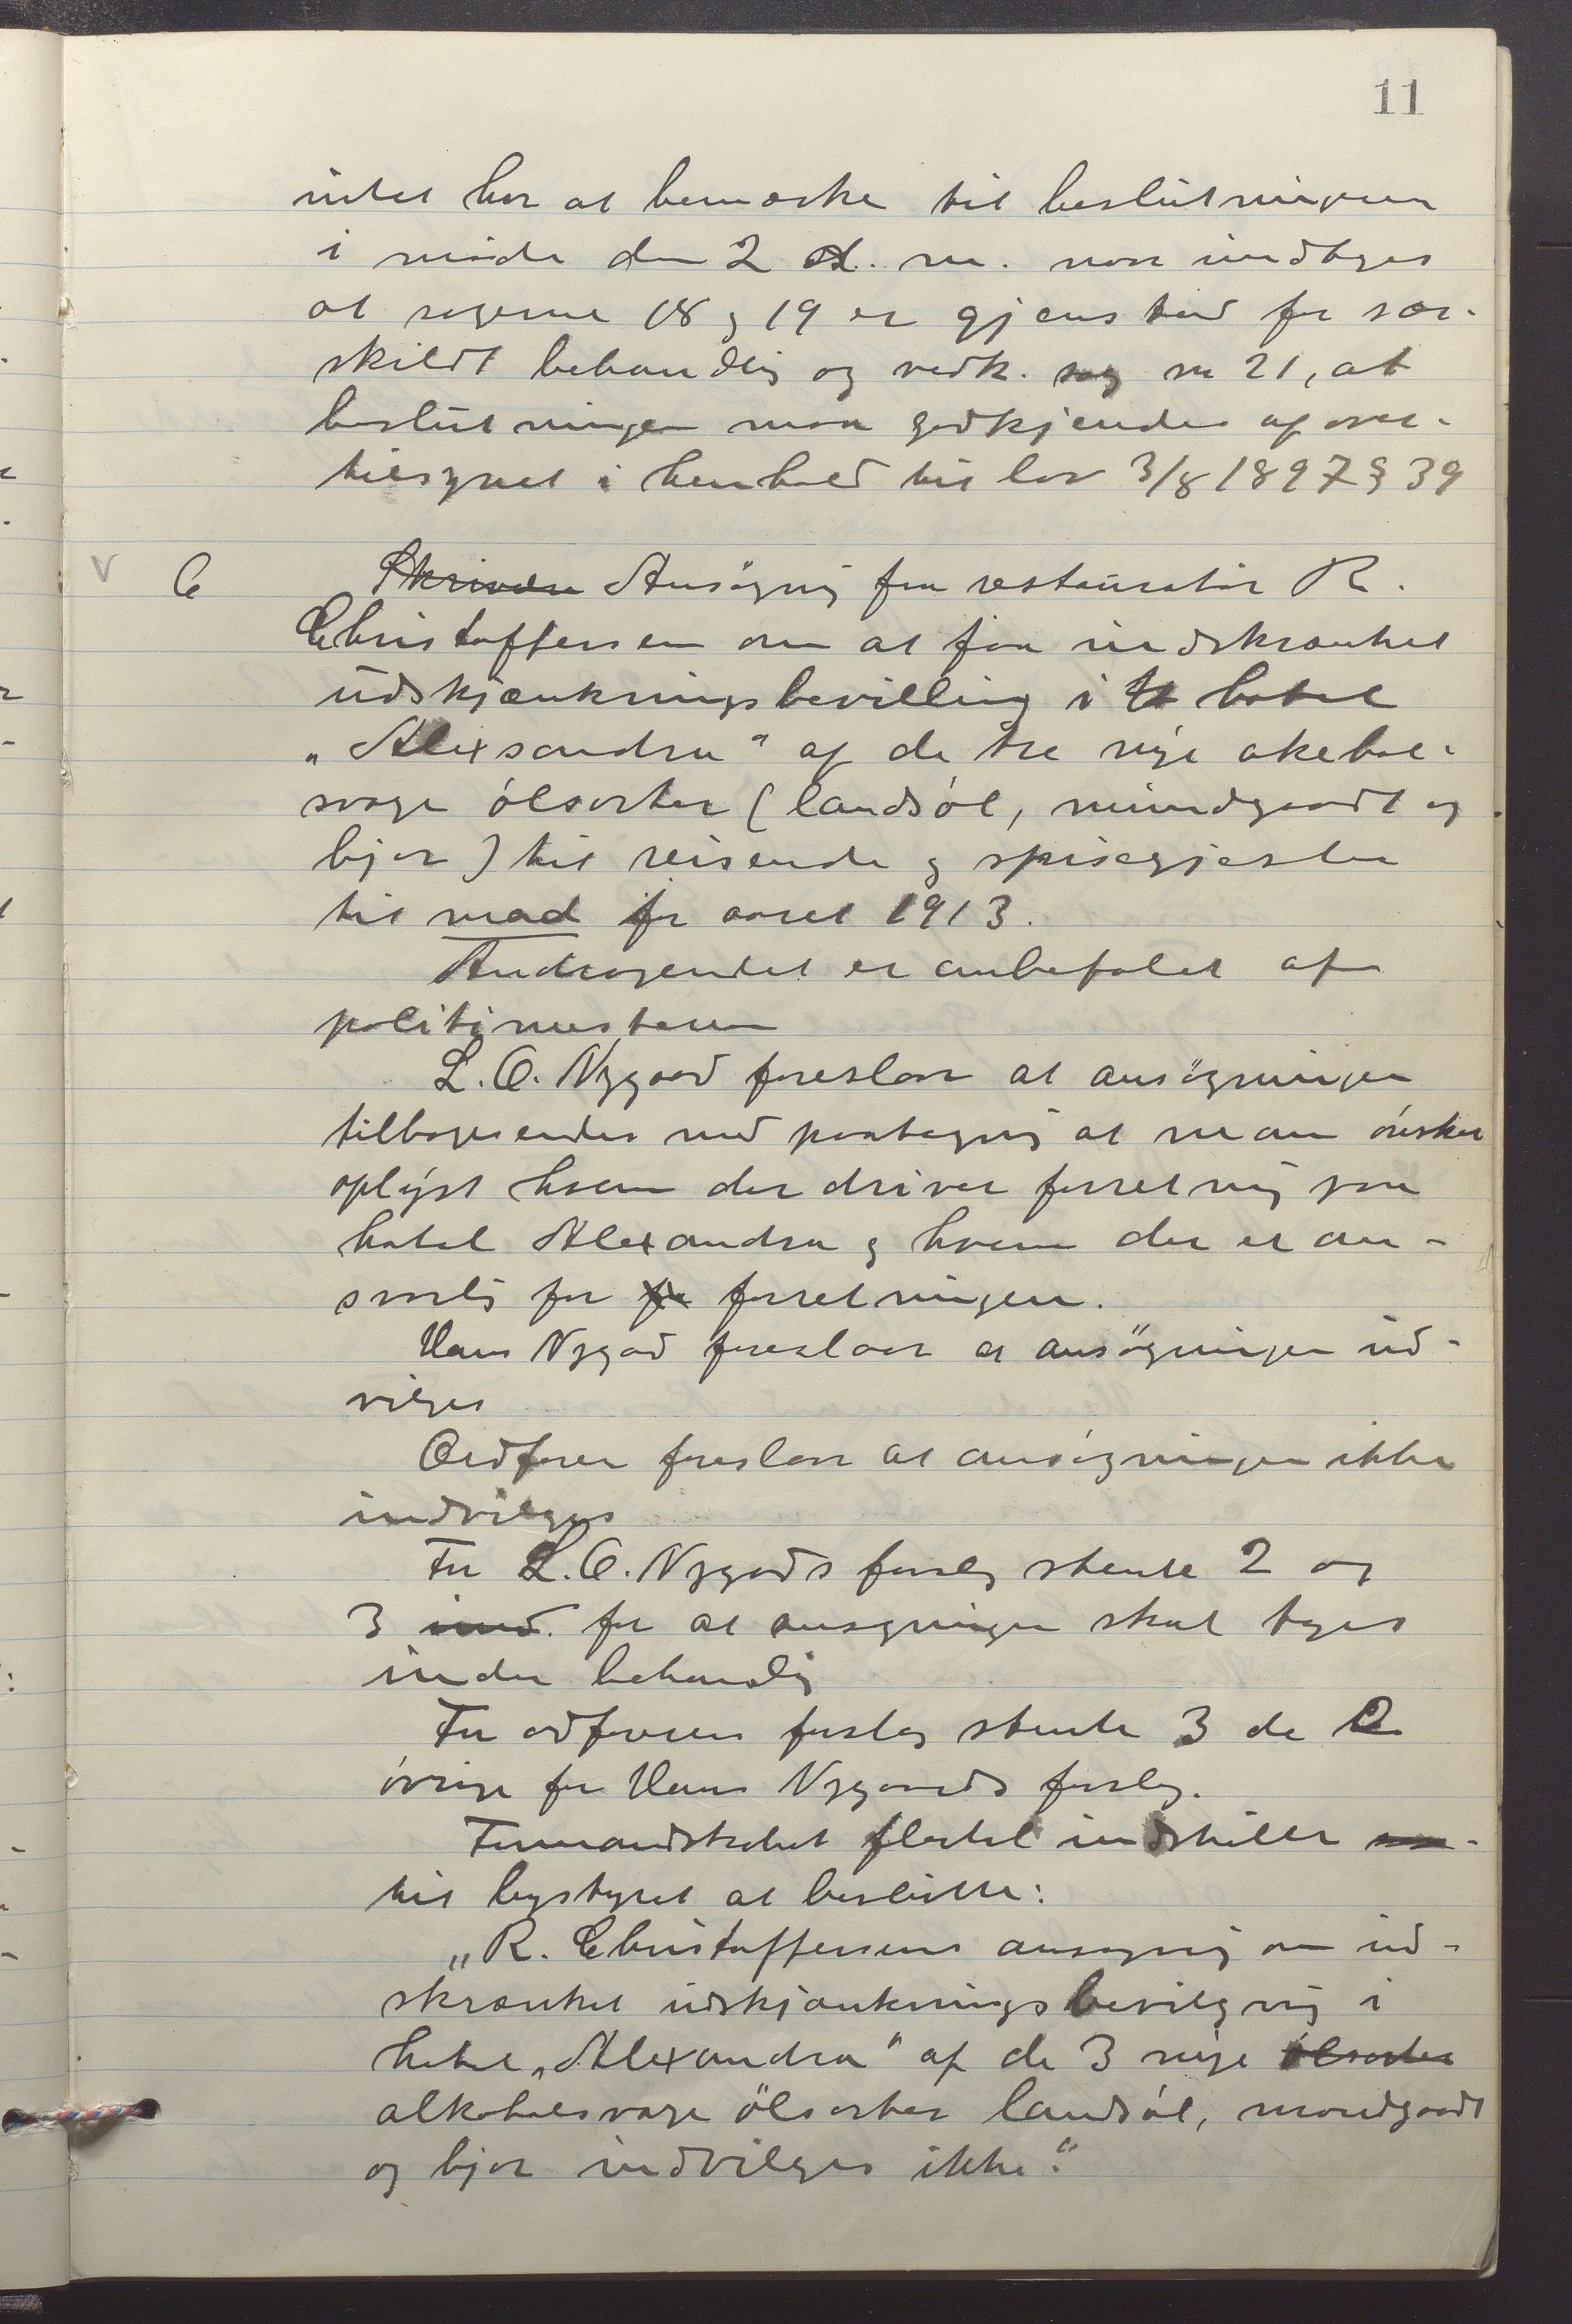 11
intet har at bemærke til beslutningerne
i møde den 2 d. m. naar undtages
at sagerne 18 og 19 er gjenstand for sær-
skildt behandling og vedk. sag nr 21, at
beslutningen maa godkjendes af over-
tilsynet i henhold til lov 3/8 1897 § 39
V 6 Skrivelse Ansögning fra restauratör R.
Christoffersen om at faa indskrænket
udskjænkningsbevilling i hotel
„Alexsandra“ af de tre nye akehol-
svage ölsorter (landsöl, mundgaadt og
bjor) til reisende og spisegjester
til mad for aaret 1913.
Andragendet er anbefalet af
politimesteren
L. O. Nygaard foreslaar at ansögningen
tilbagesendes med paategning at man önsker
oplyst hvem der driver forretning paa
hotel Alexandra og hvem der er an-
svarlig for for forretningen.
Hans Nygad foreslaar at ansögningen ind-
vilges
Ordfører foreslaar at ansögningen ikke
indvilges
For L. O. Nygads forslag stemte 2 og
3 imod. for at ansøgningen skal tages
under behandling
For ordførerens forslag stemte 3 de 2
övrige for Hans Nygaards forslag.
Formandskabets flertal indstiller
til bystyret at beslutte:
„R. Christoffersens ansøgning om ind-
skrænket udskjænkningsbevilgning i
hotel „Alexandra“ af de 3 nye ölsorter
alkoholsvage ölsorter landsöl, mundgaadt
og bjor indvilges ikke.“